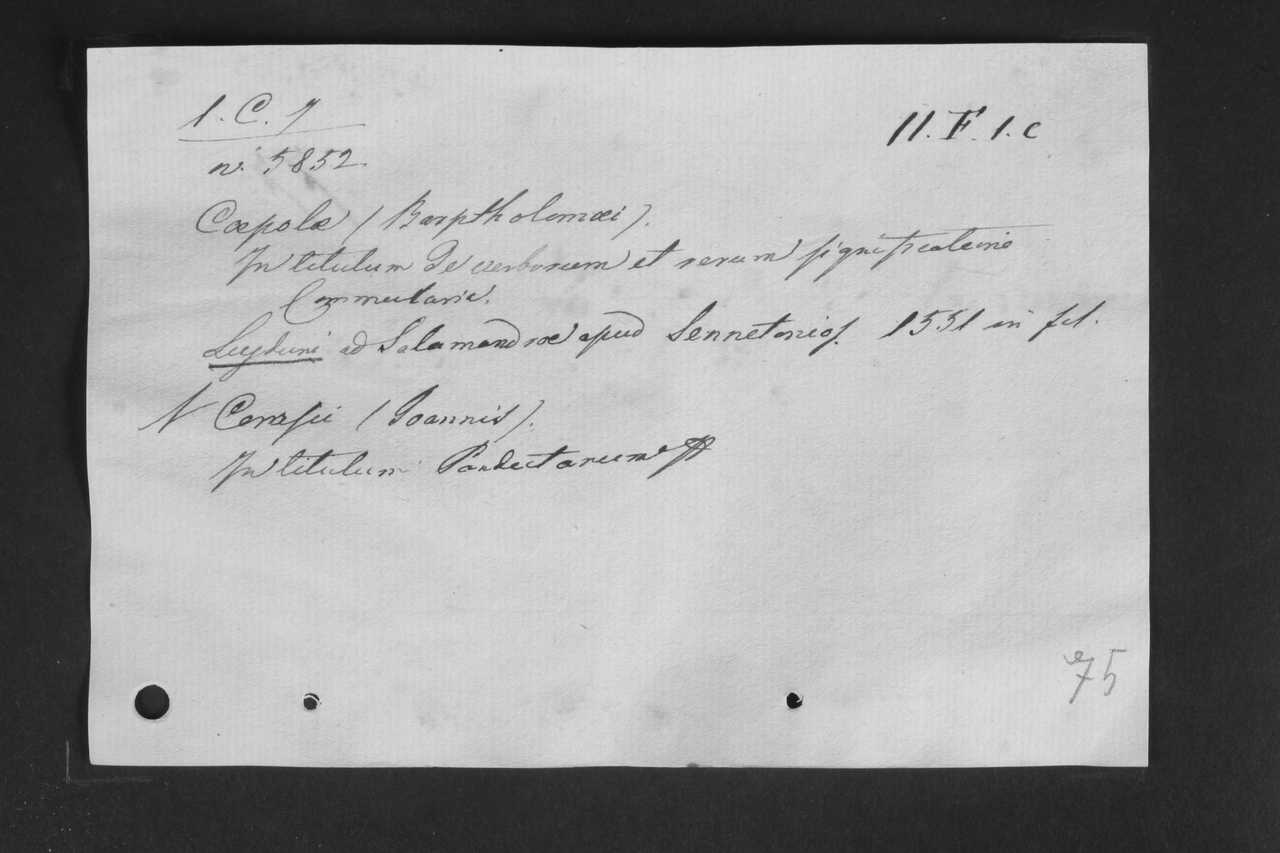 1. C. 7
II. F. 1. c
n.° 5852.
Cæpolæ (Barptholomæi).
In titulum de verborum et rerum significatione
Commentaria.
Lugduni ad Salamandræ apud Sennetonios. 1551 in fol.
N Corasii (Joannis).
In titulum Pandectarum
75